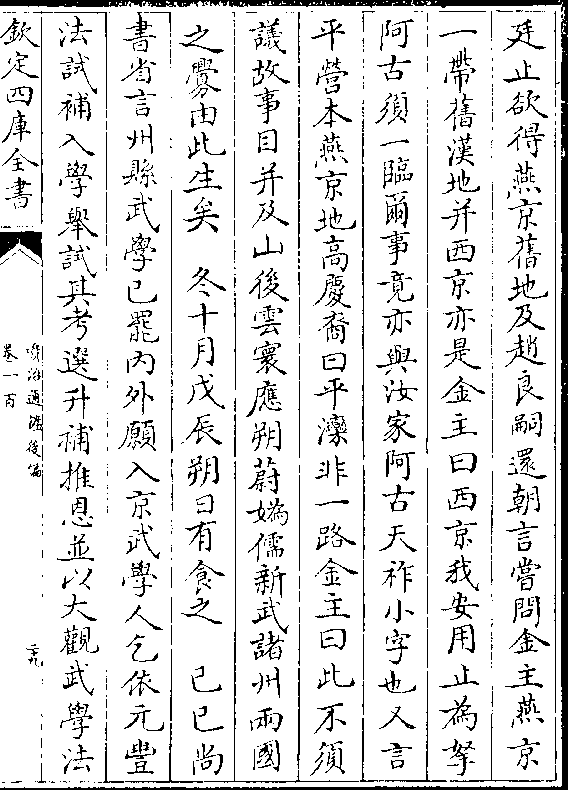 廷止欲得燕京舊地及趙良嗣還朝言嘗問金主燕京
一帶舊漢地并西京亦是金主曰西京我安用止為拏
阿古須一臨爾事竟亦與汝家阿古天祚小字也又言
平營本燕京地高慶裔曰平灤非一路金主曰此不須
議故事目并及山後雲寰應朔蔚媯儒新武諸州兩國
之釁由此生矣 冬十月戊辰朔日有食之 己巳尚
書省言州縣武學已罷內外願入京武學人乞依元豐
法試補入學舉試其考選升補推恩並以大觀武學法
欽定四庫全書
資治通鑑後編
卷一百
二十九